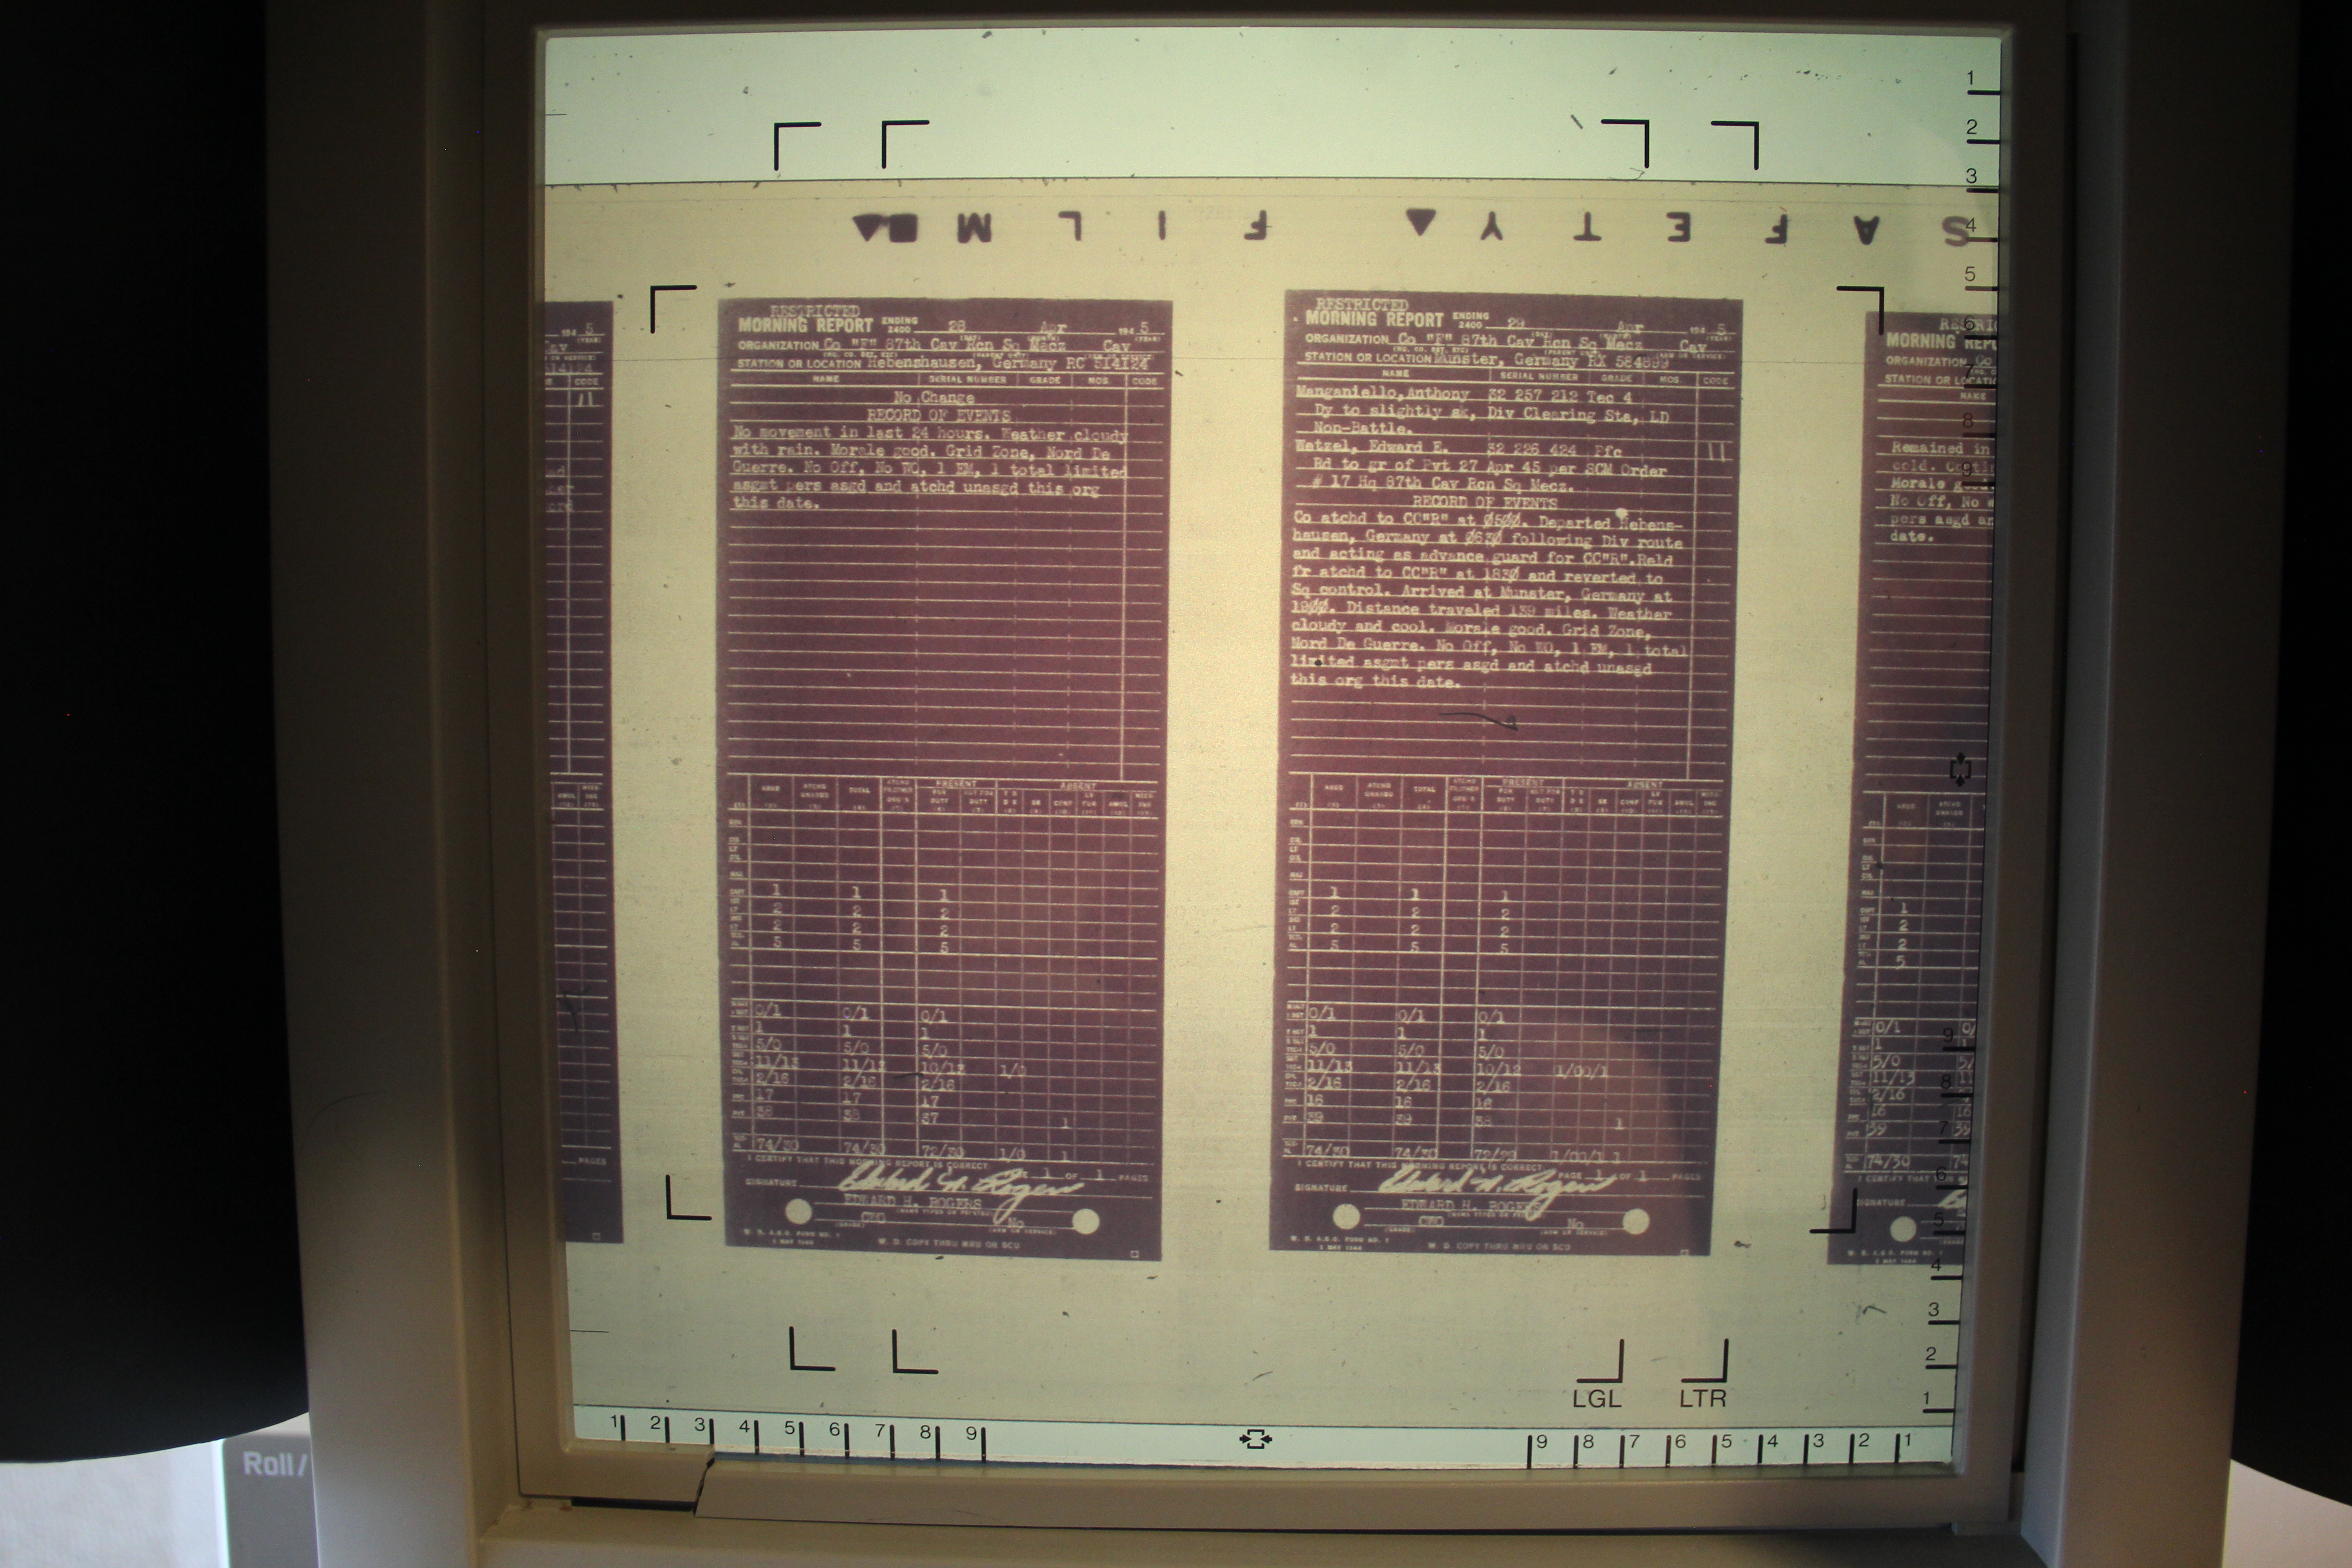 S A F E T Y F I L M
RESTRICTED
MORNING REPORT ENDING 2400 28 Apr 194 5
ORGANIZATION Co "F" 87th Cav Rcn Sq Mecz Cav
STATION OR LOCATION Hebenshausen, Germany RC 514124
NAME SERIAL NUMBER GRADE MOS CODE
No Change
RECORD OF EVENTS
No movement in last 24 hours. Weather cloudy
with rain. Morale good. Grid Zone, Nord De
Guerre. No Off, No WO, 1 EM, 1 total limited
asgmt pers asgd and atchd unasgd this org
this date.
PRESENT ABSENT
ASGD ATCHD UNASGD TOTAL
1 1 1
2 2 2
2 2 2
5 5 5
0/1 0/1 0/1
1 1 1
5/0 5/0 5/0
11/13 11/13 10/13 1/0
2/16 2/16 2/16
17 17 17
38 38 37 1
74/30 74/30 72/30 1/0 1
I CERTIFY THAT THIS MORNING REPORT IS CORRECT PAGE 1 OF 1 PAGES
SIGNATURE Edward H. Rogers
EDWARD H. ROGERS
CWO No
W. D. COPY THRU MRU OR SCU
RESTRICTED
MORNING REPORT ENDING 2400 29 Apr 194 5
ORGANIZATION Co "F" 87th Cav Rcn Sq Mecz Cav
STATION OR LOCATION Munster, Germany RX 584899
NAME SERIAL NUMBER GRADE MOS CODE
Manganiello, Anthony 32 257 212 Tec 4
Dy to slightly sk, Div Clearing Sta, LD
Non-Battle.
Wetzel, Edward E. 32 226 424 Pfc 11
Rd to gr of Pvt 27 Apr 45 per SCM Order
# 17 Hq 87th Cav Rcn Sq Mecz.
RECORD OF EVENTS
Co atchd to CC"R" at 0500. Departed Hebens-
hausen, Germany at 0630 following Div route
and acting as advance guard for CC"R".Reld
fr atchd to CC"R" at 1830 and reverted to
Sq control. Arrived at Munster, Germany at
1900. Distance traveled 139 miles. Weather
cloudy and cool. Morale good. Grid Zone,
Nord De Guerre. No Off, No WO, 1 EM, 1 total
limited asgmt pers asgd and atchd unasgd
this org this date.
PRESENT ABSENT
ASGD ATCHD UNASGD TOTAL
1 1 1
2 2 2
2 2 2
5 5 5
0/1 0/1 0/1
1 1 1
5/0 5/0 5/0
11/13 11/13 10/12 1/00/1
2/16 2/16 2/16
16 16 16
39 39 38 1
74/30 74/30 72/29 1/00/1 1
I CERTIFY THAT THIS MORNING REPORT IS CORRECT PAGE 1 OF 1 PAGES
SIGNATURE Edward H. Rogers
EDWARD H. ROGERS
CWO No
W. D. COPY THRU MRU OR SCU
MORNING
ORGANIZATION Co
STATION OR
NAME
Remained in
cold.
Morale good.
No Off, No
pers asgd an
date.
1
2
2
5
0/1
1
5/0
11/13
2/16
16
39
74/30
SIGNATURE
194 5
CODE
11
PAGES
LGL LTR
1 2 3 4 5 6 7 8 9
9 8 7 6 5 4 3 2 1
1 2 3 4 5 6 7 8 9
9 8 7 6 5 4 3 2 1
Roll/